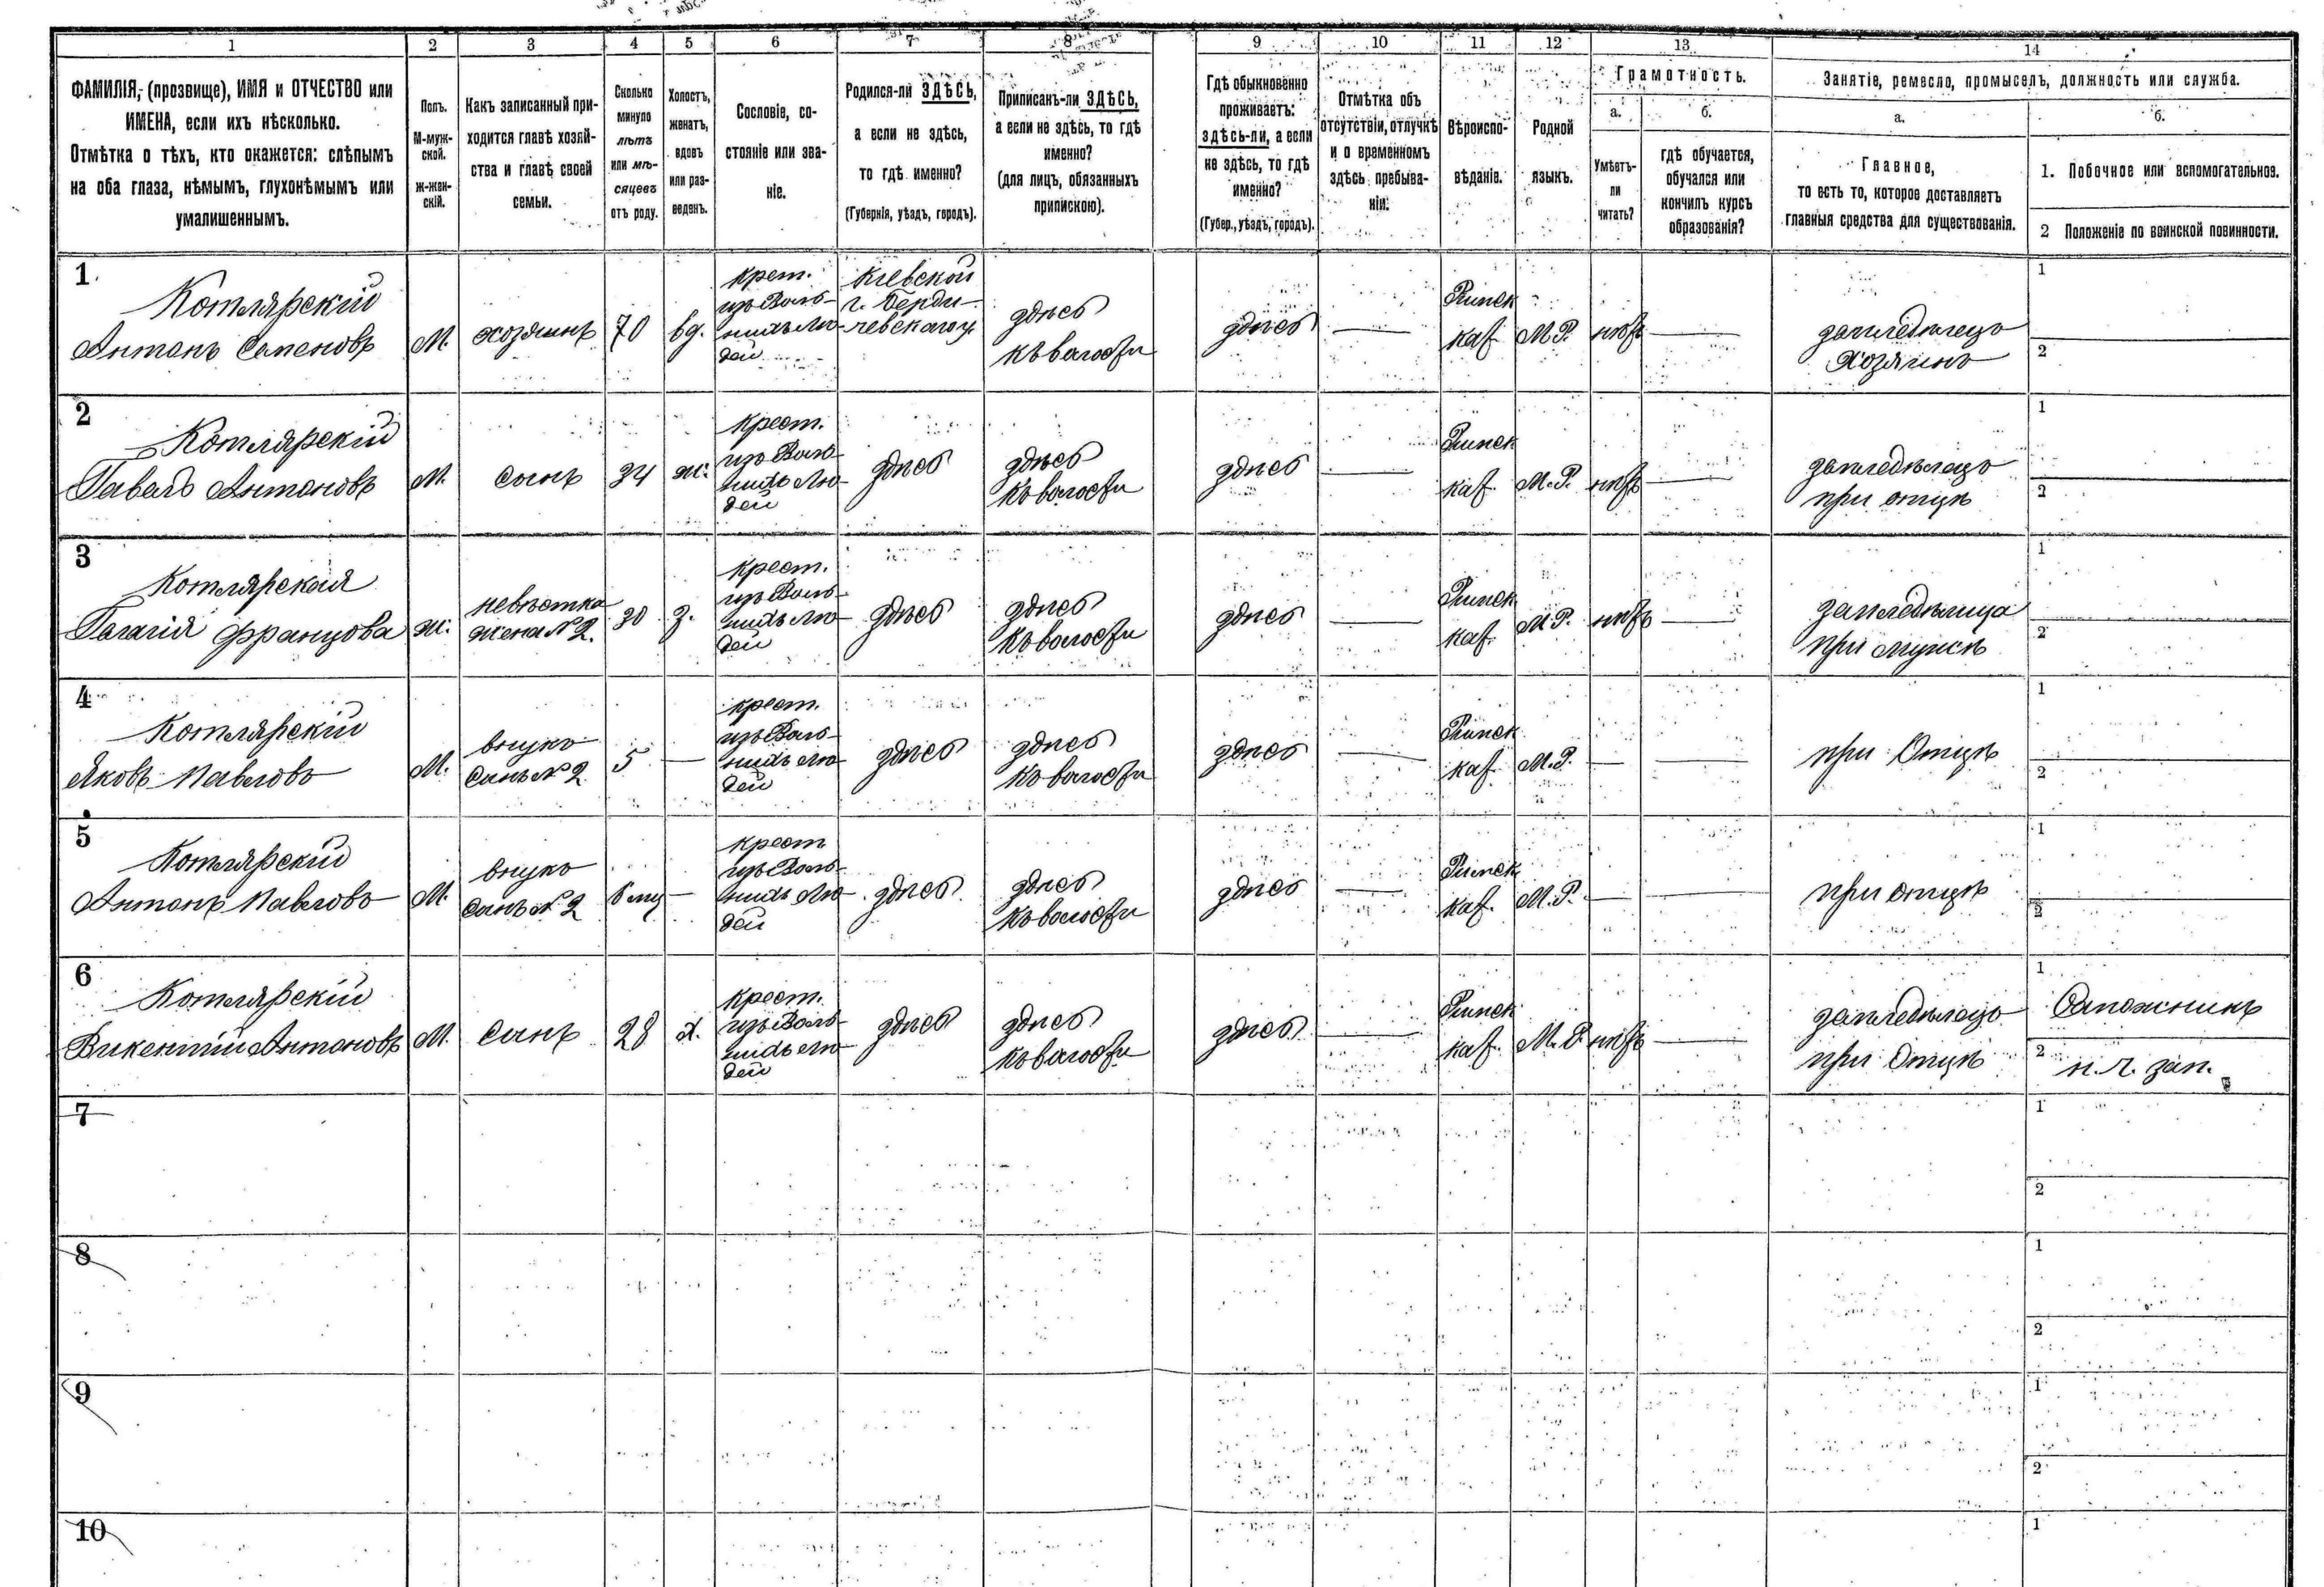 1 2 3 4 5 6 7 8 9 10 11 12 13 14
ФАМИЛІЯ, (прозвище), ИМЯ и ОТЧЕСТВО или
ИМЕНА, если ихъ нѣсколько.
Отмѣтка о тѣхъ, кто окажется: слѣпымъ
на оба глаза, нѣмымъ, глухонѣмымъ или
умалишеннымъ.
Полъ.
М-муж-
ской.
Ж-жен-
скій.
Какъ записанный при-
ходится главѣ хозяй-
ства и главѣ своей
семьи.
Сколько
минуло
лѣтъ
или мѣ-
сяцевъ
отъ роду.
Холостъ,
женатъ,
вдовъ
или раз-
веденъ.
Сословіе, со-
стояніе или зва-
ніе.
Родился-ли ЗДѢСЬ,
а если не здѣсь,
то гдѣ именно?
(Губернія, уѣздъ, городъ).
Приписанъ-ли ЗДѢСЬ,
а если не здѣсь, то гдѣ
именно?
(для лицъ, обязанныхъ
припискою).
Гдѣ обыкновенно
проживаетъ:
здѣсь-ли, а если
не здѣсь, то гдѣ
именно?
(Губер., уѣздъ, городъ).
Отмѣтка объ
отсутствіи, отлучкѣ
и о временномъ
здѣсь пребыва-
ніи.
Вѣроиспо-
вѣданіе.
Родной
языкъ.
Грамотность.
а.
Умѣетъ-
ли
читать?
б.
гдѣ обучается,
обучался или
кончилъ курсъ
образованія?
Занятіе, ремесло, промыселъ, должность или служба.
а.
Главное,
то есть то, которое доставляетъ
главныя средства для существованія.
б.
1. Побочное или вспомогательное.
2 Положеніе по воинской повинности.
1
Котлярскій
Антонъ Семеновъ
М.
хозяинъ
70
вд.
крест.
изъ Воль-
ныхъ Лю-
дей
Кіевской
г. Берди-
чевскаго у.
здѣсь
къ волости
здѣсь
Римск
каѳ
М.Р.
нѣтъ
земледѣлецъ
Хозяинъ
1
2
2
Котлярскій
Павелъ Антоновъ
М.
сынъ
34
ж.
крест.
изъ Воль-
ныхъ Лю-
дей
здѣсь
здѣсь
къ волости
здѣсь
Римск
каѳ.
М.Р.
нѣтъ
земледѣлецъ
при отцѣ
1
2
3
Котлярская
Пелагія Францова
ж.
невѣстка
жена № 2.
30
з.
крест.
изъ Воль-
ныхъ лю-
дей
здѣсь
здѣсь
къ волости
здѣсь
Римск
каѳ.
М.Р.
нѣтъ
земледѣлица
при мужѣ
1
2
4
Котлярскій
Яковъ Павловъ
М.
внукъ
сынъ № 2
5
крест.
изъ Воль-
ныхъ лю-
дей
здѣсь
здѣсь
къ волости
здѣсь
Римск
каѳ
М.Р.
при Отцѣ
1
2
5
Котлярскій
Антонъ Павловъ
М.
внукъ
сынъ № 2
крест
изъ Воль-
ныхъ Лю-
дей
здѣсь
здѣсь
къ волости
здѣсь
Римск
каѳ.
М.Р.
при отцѣ
1
2
6
Котлярскій
Викентій Антоновъ
М.
сынъ
28
х.
крест.
изъ Воль-
ныхъ лю-
дей
здѣсь
здѣсь
къ волости
здѣсь
Римск
каѳ.
М.Р.
нѣтъ
земледѣлецъ
при Отцѣ
1
Сапожникъ
2
7
1
2
8
1
2
9
1
2
10
1